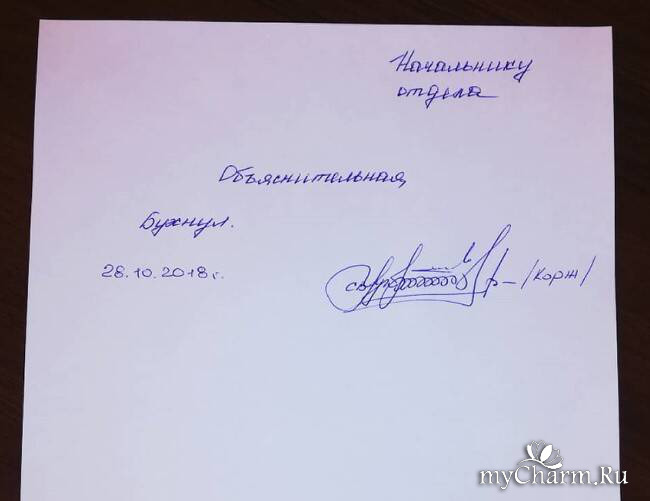 Начальнику
отдела
Объяснительная
Бухнул.
28.10.2018г.
/Корж/
myCharm.Ru